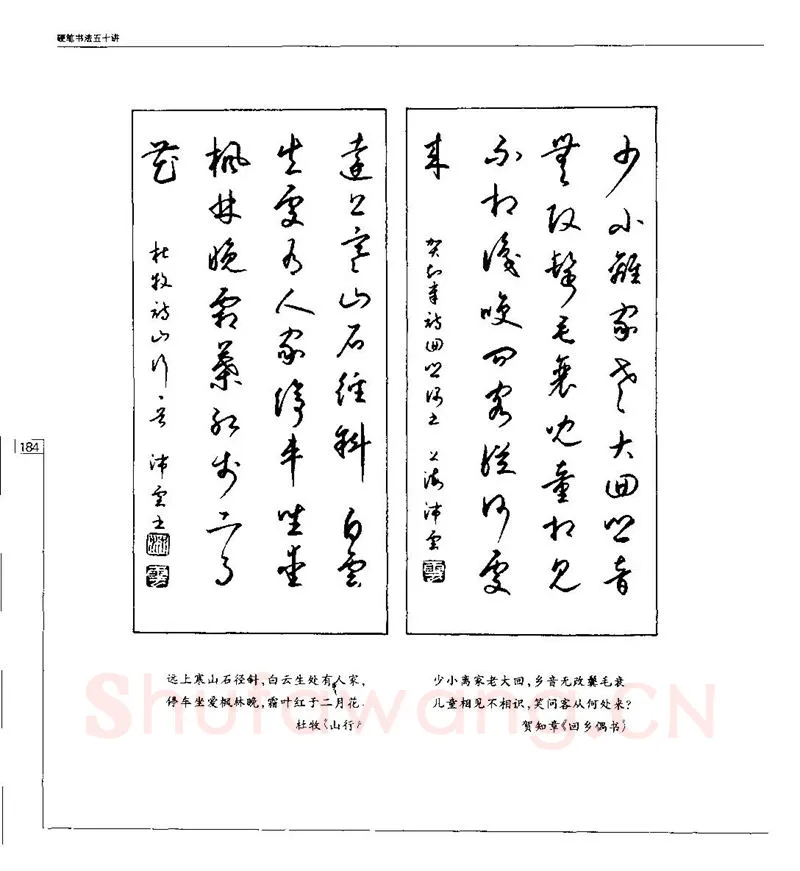 硬笔书法五十讲
少小離家老大回鄉音
無改鬢毛衰兒童相見
不相識笑問客從何處
來
賀知章詩回鄉偶書 上海沛雲
遠上寒山石徑斜白雲
生處有人家停車坐愛
楓林晚霜葉紅於二月
花
杜牧詩山行一首 沛雲書
184
远上寒山石径斜,白云生处有人家,
停车坐爱枫林晚,霜叶红于二月花.
杜牧《山行》
少小离家老大回,乡音无改鬓毛衰
儿童相见不相识,笑问客从何处来?
贺知章《回乡偶书》
Shufawang.CN